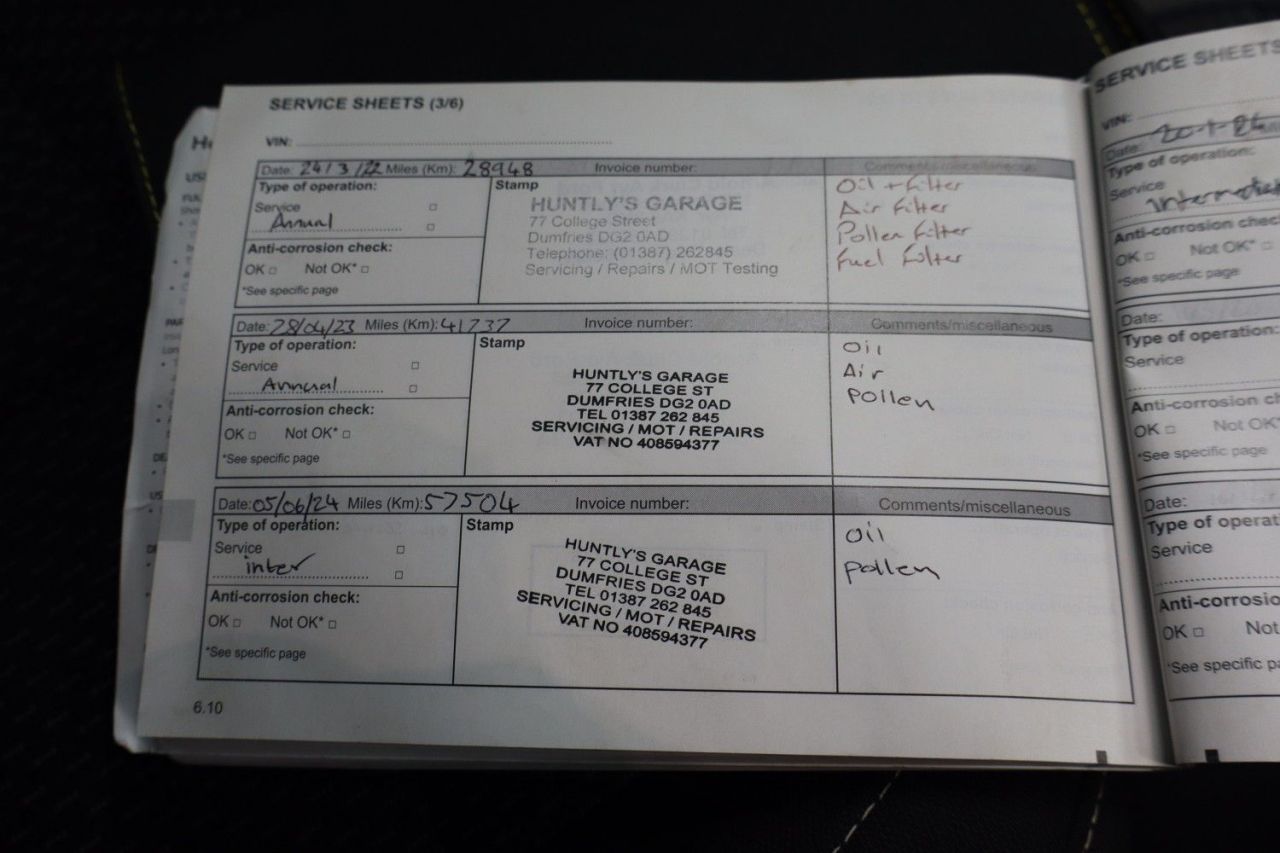 SERVICE SHEETS (3/6)
VIN:
Date: 24/3/22 Miles (Km): 28948 Invoice number: Comments/miscellaneous
Type of operation:
Service
Annual
Anti-corrosion check:
OK □ Not OK* □
*See specific page
Stamp
HUNTLY'S GARAGE
77 College Street
Dumfries DG2 0AD
Telephone: (01387) 262845
Servicing / Repairs / MOT Testing
Oil + filter
Air filter
Pollen filter
Fuel filter
Date: 28/04/23 Miles (Km): 41737 Invoice number: Comments/miscellaneous
Type of operation:
Service
Annual
Anti-corrosion check:
OK □ Not OK* □
*See specific page
Stamp
HUNTLY'S GARAGE
77 COLLEGE ST
DUMFRIES DG2 0AD
TEL 01387 262 845
SERVICING / MOT / REPAIRS
VAT NO 408594377
Oil
Air
Pollen
Date: 05/06/24 Miles (Km): 57504 Invoice number: Comments/miscellaneous
Type of operation:
Service
inter
Anti-corrosion check:
OK □ Not OK* □
*See specific page
Stamp
HUNTLY'S GARAGE
77 COLLEGE ST
DUMFRIES DG2 0AD
TEL 01387 262 845
SERVICING / MOT / REPAIRS
VAT NO 408594377
Oil
Pollen
6.10
SERVICE SHEETS
VIN:
Date:
Type of operation:
Service
Intermediat
Anti-corrosion check
OK □ Not OK* □
*See specific page
Date:
Type of operation:
Service
Anti-corrosion ch
OK □ Not OK*
*See specific page
Date:
Type of operat
Service
Anti-corrosio
OK □ Not
*See specific pa